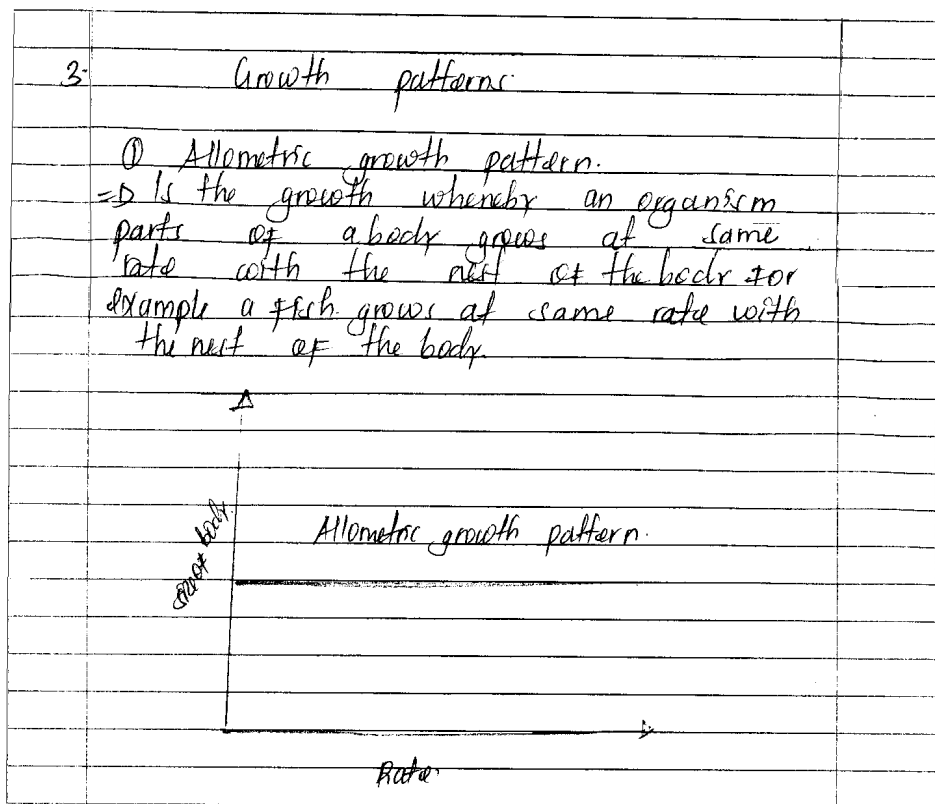 3. Growth patterns.
① Allometric growth pattern.
=D Is the growth whereby an organism
parts of a body grows at same
rate with the rest of the body for
example a fish grows at same rate with
the rest of the body.
size of body.
Allometric growth pattern.
Rate.